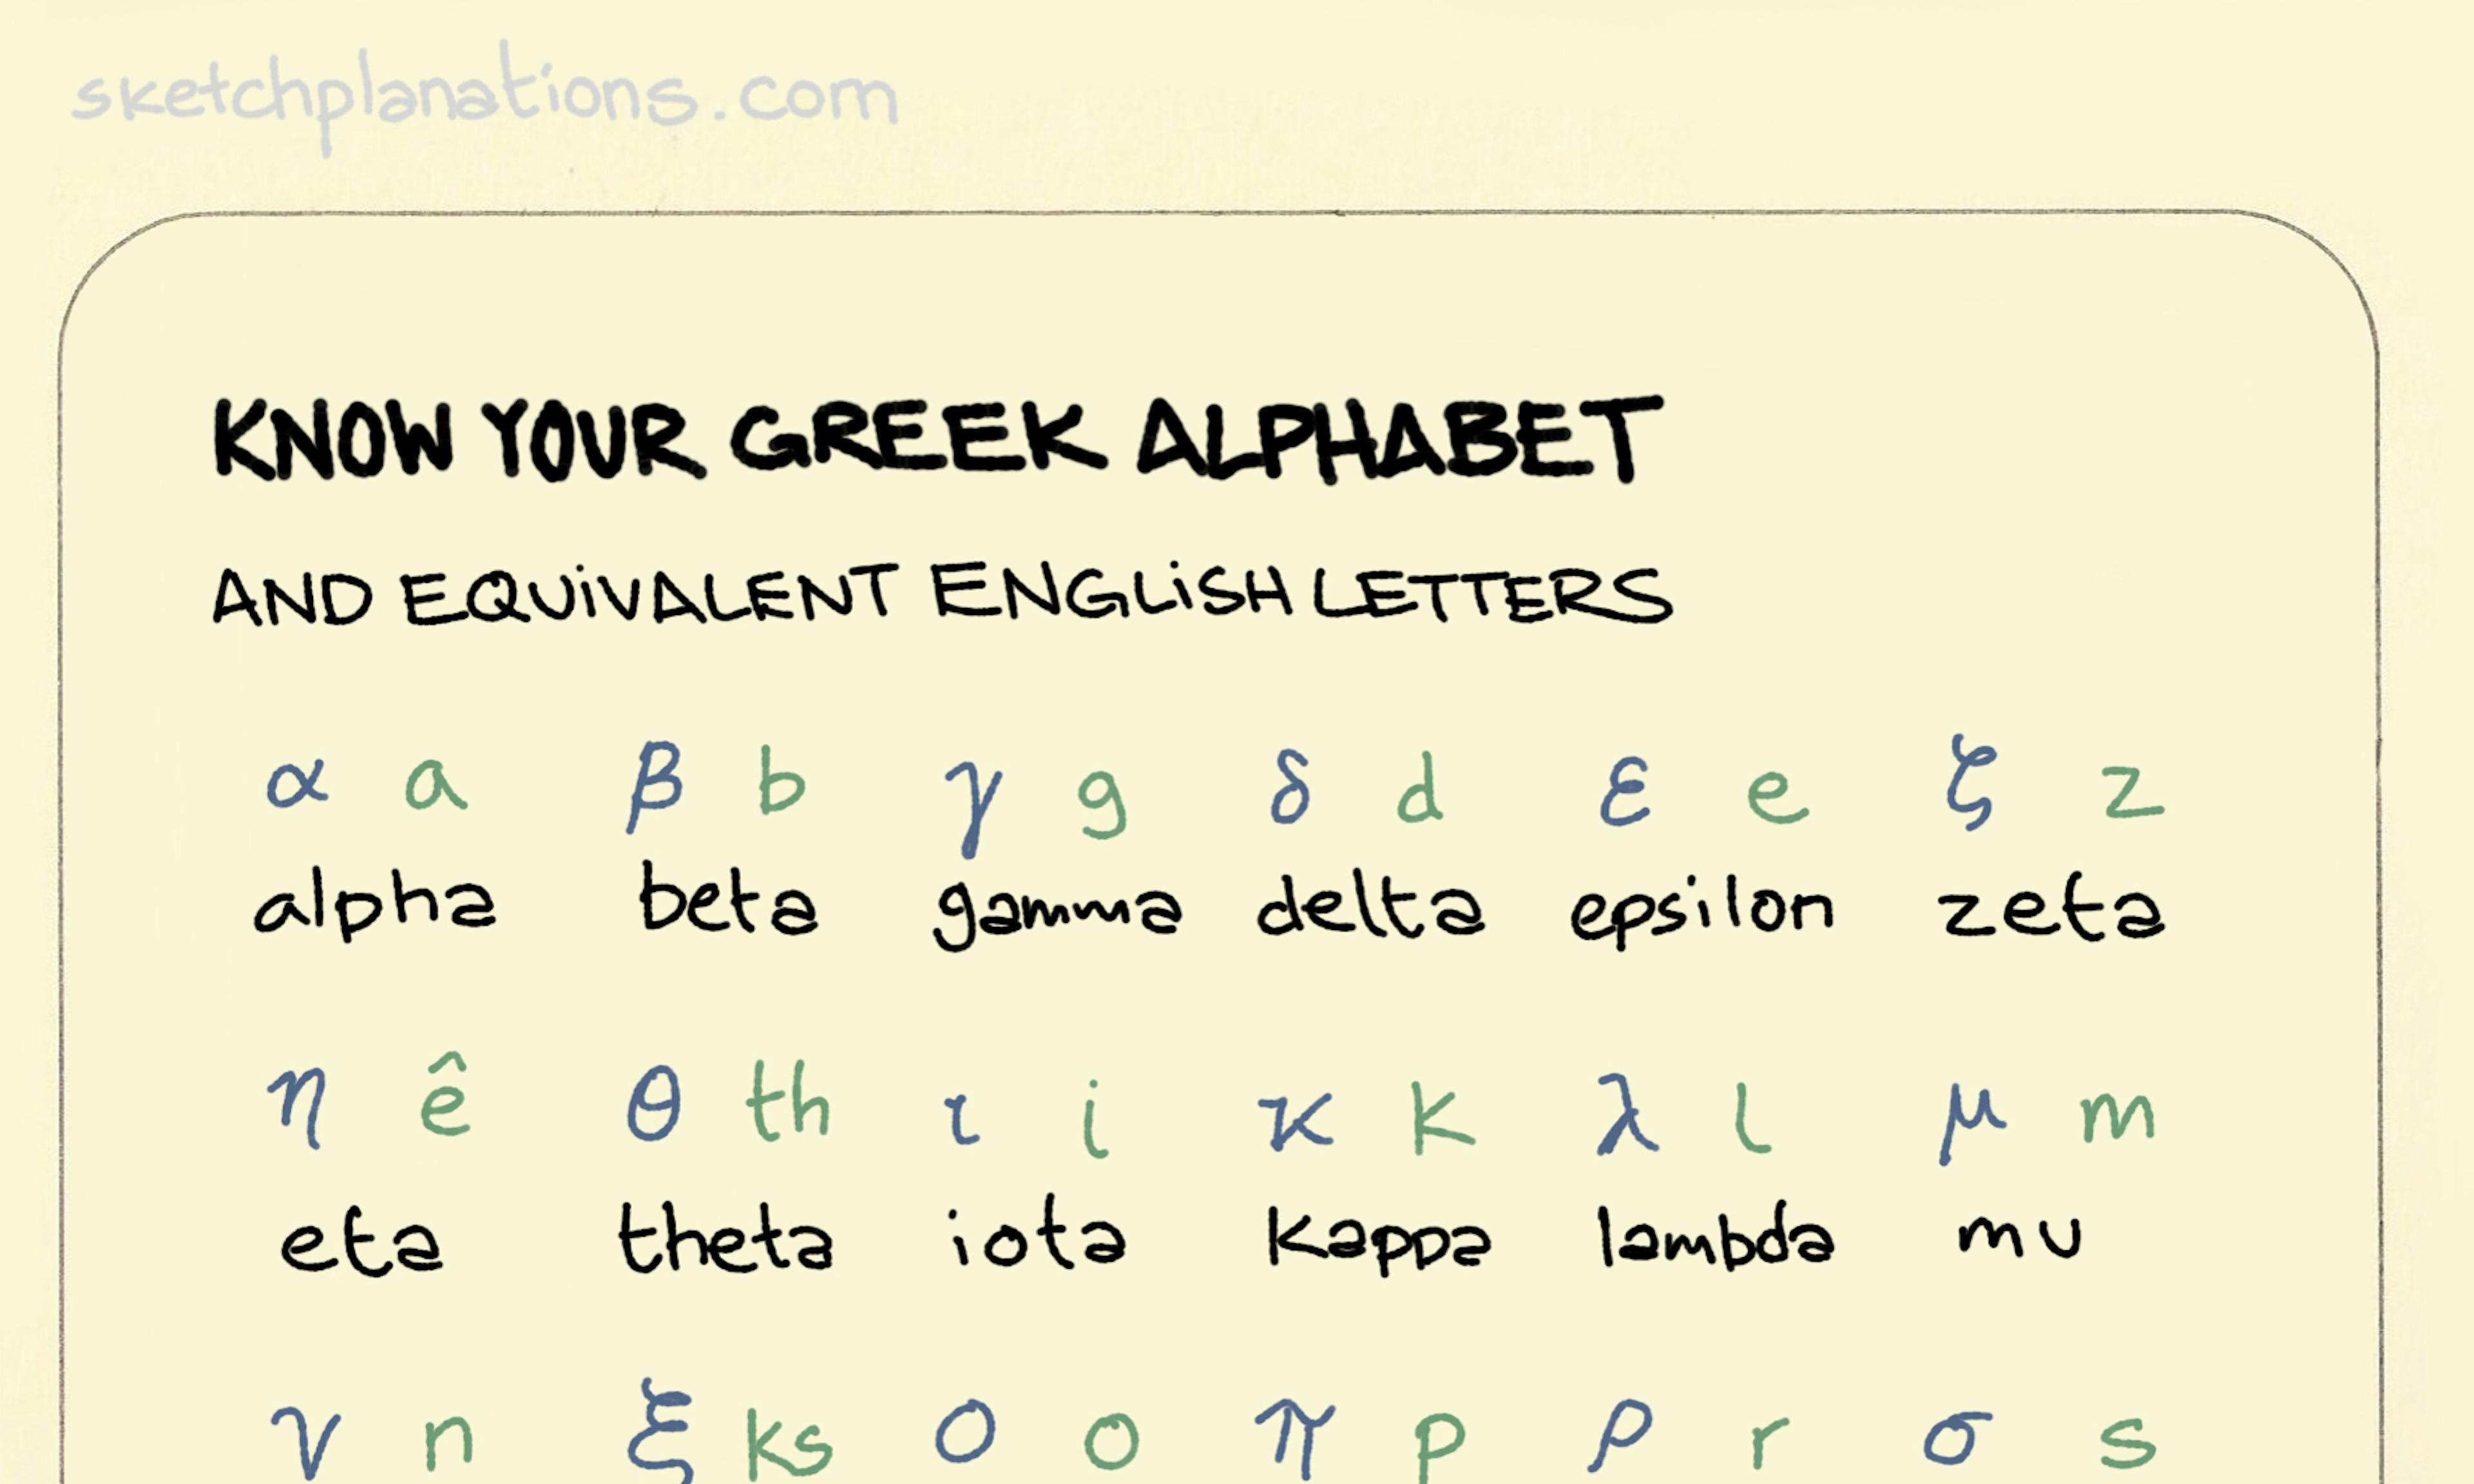 sketchplanations.com
KNOW YOUR GREEK ALPHABET
AND EQUIVALENT ENGLISH LETTERS
α a β b γ g δ d ε e ζ z
alpha beta gamma delta epsilon zeta
η ê θ th ι i κ k λ l μ m
eta theta iota kappa lambda mu
ν n ξ ks ο o π p ρ r σ s